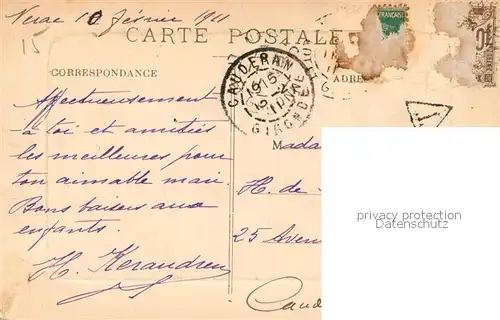 Verac 10 février 1911
15
CARTE POSTALE
CORRESPONDANCE
ADRE
FRANÇAISE
CAUDERAN
GIRONDE
Affectueusement
à toi et amitiés
les meilleures pour
ton aimable mari.
Bons baisers aux
enfants.
H. Kerandren
Mada
H. de
25 Aven
Caud
privacy protection
Datenschutz